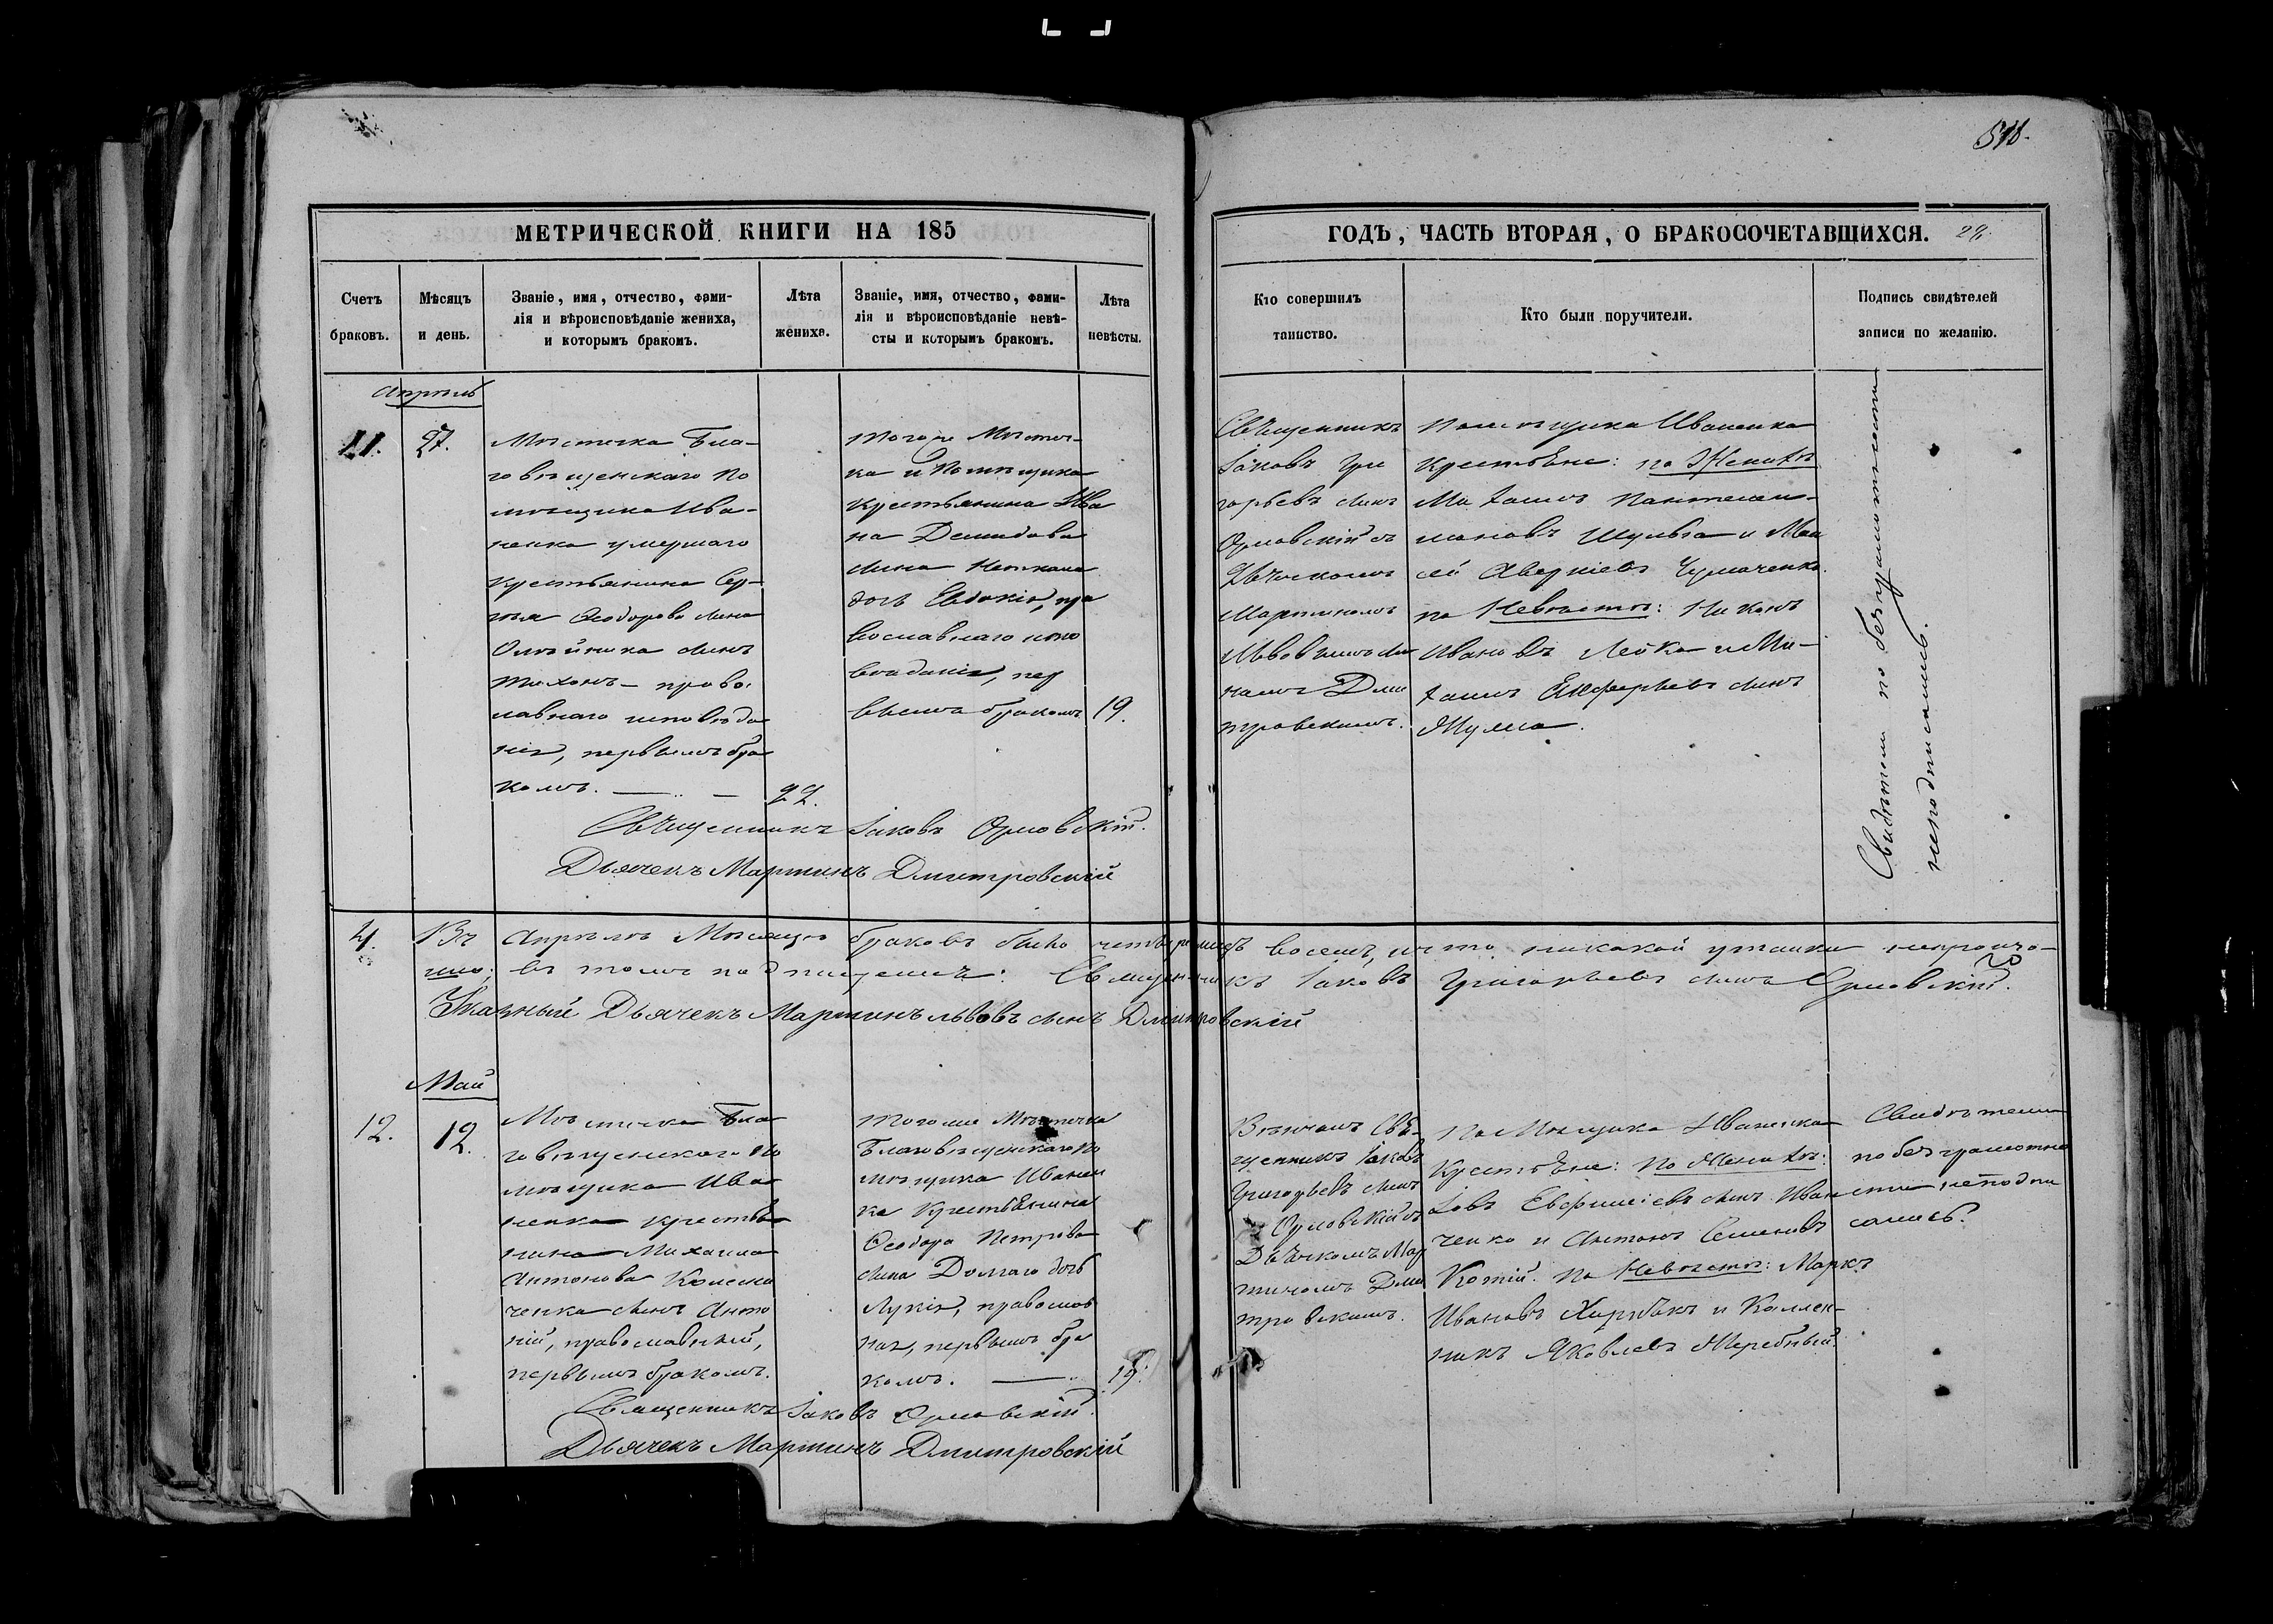 518.
МЕТРИЧЕСКОЙ КНИГИ НА 185
ГОДЪ, ЧАСТЬ ВТОРАЯ, О БРАКОСОЧЕТАВШИХСЯ. 29.
Счетъ
браковъ.
Мѣсяцъ
и день.
Званіе, имя, отчество, фами-
лія и вѣроисповѣданіе жениха,
и которымъ бракомъ.
Лѣта
жениха.
Званіе, имя, отчество, фами-
лія и вѣроисповѣданіе невѣ-
сты и которымъ бракомъ.
Лѣта
невѣсты.
Кто совершилъ
таинство.
Кто были поручители.
Подпись свидѣтелей
записи по желанію.
Апрѣль
11.
27.
Мѣстечка Бла-
говѣщенскаго по
мѣщика Ива-
ненка умершаго
крестьянина Сер-
гѣя Ѳеодорова сына
Олѣйника сынъ
Тихонъ - правос
лавнаго исповѣда
нія, первымъ бра
комъ.
22.
Тогоже Мѣстеч-
ка и Помѣщика
крестьянина Ива
на Демидова
сына
дочь Евдокія, пра
вославнаго испо
вѣданія, пер
вымъ бракомъ
19.
Священникъ
Іаковъ Гри
горьевъ сынъ
Орловскій съ
Дьячкомъ
Мартиномъ
Львовымъ сы
номъ Дми
тровскимъ.
Помѣщика Иваненка
крестьяне: по Женихѣ
Пантелеи-
моновъ Шульга и Мои
сей Аверкіевъ Чумаченко.
по Невѣстѣ: Никонъ
Ивановъ
сынъ
Шульга.
Свидѣтели по безграмотности
неподписались.
Священникъ Іаковъ Орловскій.
Дьячекъ Мартинъ Дмитровскій
4.
Въ Апрѣлѣ Мѣсяцѣ браковъ было четыре,
восемь, и что никакой утайки непроизо-
шло; въ томъ подписуемъ: Священникъ Іаковъ Григорьевъ сынъ Орловскій.
Указный Дьячекъ Мартинъ Львовъ сынъ Дмитровскій
Май
12.
12.
Мѣстечка Бла
говѣщенскаго по
мѣщика Ива
ненка крестья
нина Михаила
Антонова Колесни
ченка сынъ Анто
ній, православный,
первымъ бракомъ.
Тогоже Мѣстечка
Благовѣщенскаго по
мѣщика Иванен
ка Крестьянина
Ѳеодора Петрова
сына Долгаго дочь
Лукія, православ
ная, первымъ бра
комъ.
19.
Вѣнчалъ Свя-
щенникъ Іаковъ
Григорьевъ сынъ
Орловскій съ
Дьячкомъ Мар
тиномъ Дми
тровскимъ.
Помѣщика Иваненка
Крестьяне: По Женихѣ:
Іовъ Евфиміевъ сынъ Иван
ченко и Антонъ Семеновъ
Котій. По Невѣстѣ: Маркъ
Ивановъ и Каллен-
никъ Яковлевъ Жеребный.
Свидѣтели
по безграмотно
сти неподпи
сались.
Священникъ Іаковъ Орловскій.
Дьячекъ Мартинъ Дмитровскій